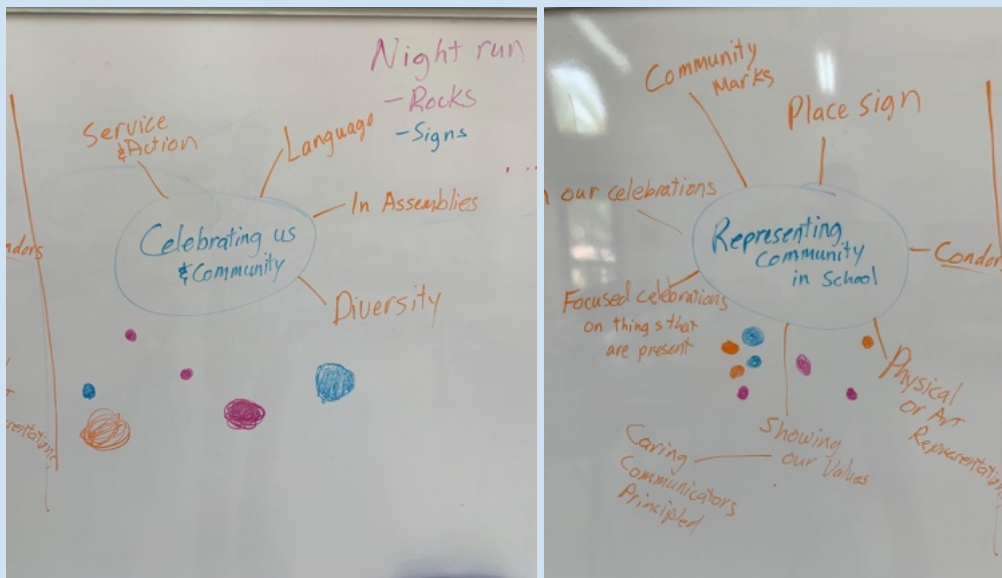 Night run
- Rocks
- Signs
Service
& Action
Language
In Assemblies
Celebrating us
& Community
Diversity
Community
Marks
Place sign
our celebrations
Representing
Community
in School
Condor
Focused celebrations
on things that
are present
Physical
or Art
Representation
Showing
our Values
Caring
Communicators
Principled